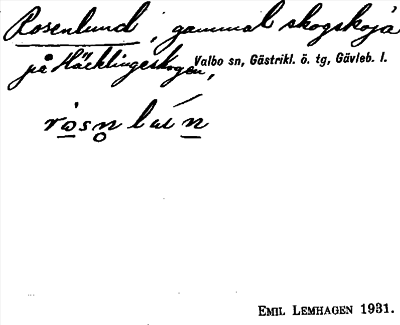 Rosenlund, gammal skogskoja
på Häcklingeskogen, Valbo sn, Gästrikl. ö. tg, Gävleb. l.
EMIL LEMHAGEN 1931.